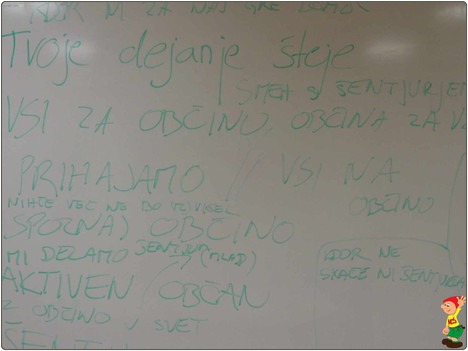 ZA NAS GRE
Tvoje dejanje šteje
SMEH V ŠENTJURJEM
VSI ZA OBČINO, OBČINA ZA V
PRIHAJAMO !! VSI NA
OBČINO
NIHČE VEČ NE BO
SPOZNAJ OBČINO
MI DELAMO ŠENTJUR
(MLAD)
KDOR NE
SKAČE NI ŠENTJURČA
AKTIVEN OBČAN
Z OBČINO V SVET